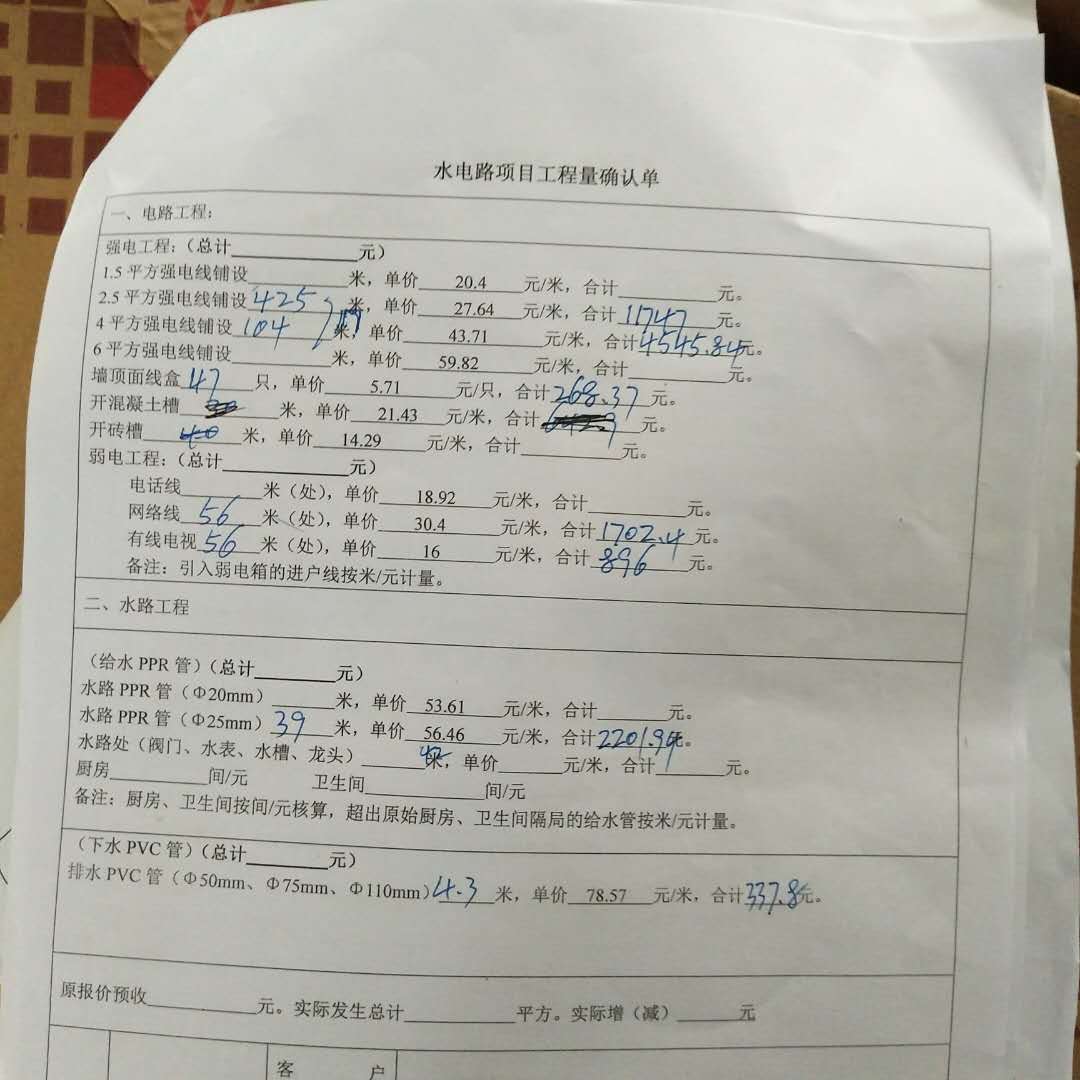 水电路项目工程量确认单
一、电路工程:
强电工程:(总计____________元)
1.5 平方强电线铺设__________米，单价__20.4__元/米，合计__________元。
2.5 平方强电线铺设 425 米，单价__27.64__元/米，合计 11747 元。
4 平方强电线铺设 104 米，单价__43.71__元/米，合计 4545.84 元。
6 平方强电线铺设__________米，单价__59.82__元/米，合计__________元。
墙顶面线盒 47 只，单价__5.71__元/只，合计 268.37 元。
开混凝土槽__________米，单价__21.43__元/米，合计__________元。
开砖槽__________米，单价__14.29__元/米，合计__________元。
弱电工程:(总计____________元)
电话线________米（处），单价__18.92__元/米，合计__________元。
网络线 56 米（处），单价__30.4__元/米，合计 1702.4 元。
有线电视 56 米（处），单价__16__元/米，合计 896 元。
备注：引入弱电箱的进户线按米/元计量。
二、水路工程
（给水 PPR 管）(总计________元)
水路 PPR 管（Φ20mm）________米，单价__53.61__元/米，合计________元。
水路 PPR 管（Φ25mm）39 米，单价__56.46__元/米，合计 2201.94 元。
水路处（阀门、水表、水槽、龙头）________米，单价________元/米，合计________元。
厨房__________间/元 卫生间____________间/元
备注：厨房、卫生间按间/元核算，超出原始厨房、卫生间隔局的给水管按米/元计量。
（下水 PVC 管）(总计________元)
排水 PVC 管（Φ50mm、Φ75mm、Φ110mm）4.3 米，单价__78.57__元/米，合计 337.8 元。
原报价预收____________元。实际发生总计____________平方。实际增（减）______元
客 户